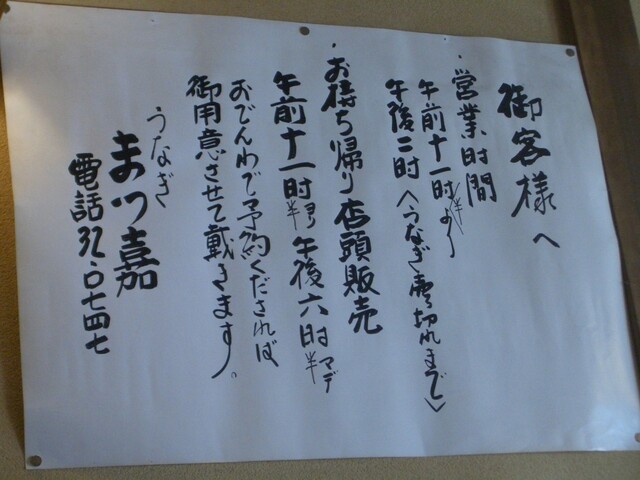 御客様へ
・営業時間
午前十一時半より
午後二時〈うなぎ売切れまで〉
・お持ち帰り店頭販売
午前十一時半ヨリ午後六時半マデ
おでんわで予約くだされば
御用意させて戴きます。
うなぎ
まつ嘉
電話32・0747